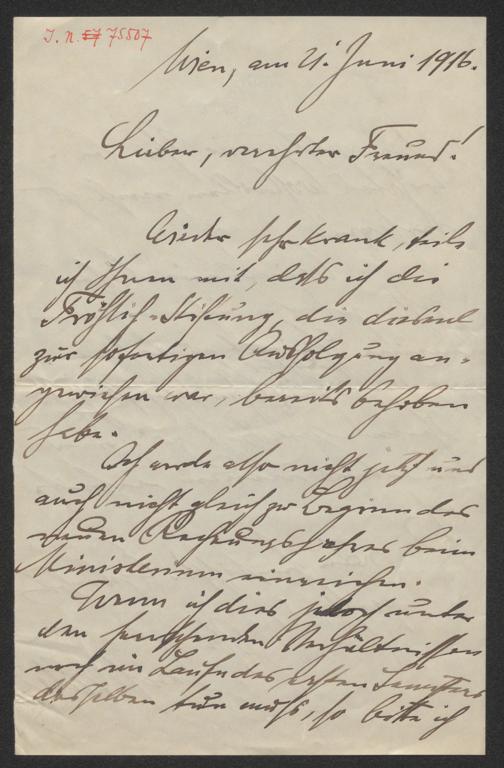 J. N. 75507
Wien, am 21. Juni 1916.
Lieber, verehrter Freund!
Wieder sehr krank, teile
ich Ihnen mit, daß ich die
Fröhlich-Stiftung, die diesmal
zur sofortigen Ausfolgung an-
gewiesen war, bereits behoben
habe.
Ich werde also nicht jetzt und
auch nicht gleich zu Beginn des
neuen Rechnungsjahres beim
Ministerium einreichen.
Wenn ich dies jedoch unter
den herrschenden Verhältnissen
noch im Laufe des ersten Semesters
desselben tun muß, so bitte ich